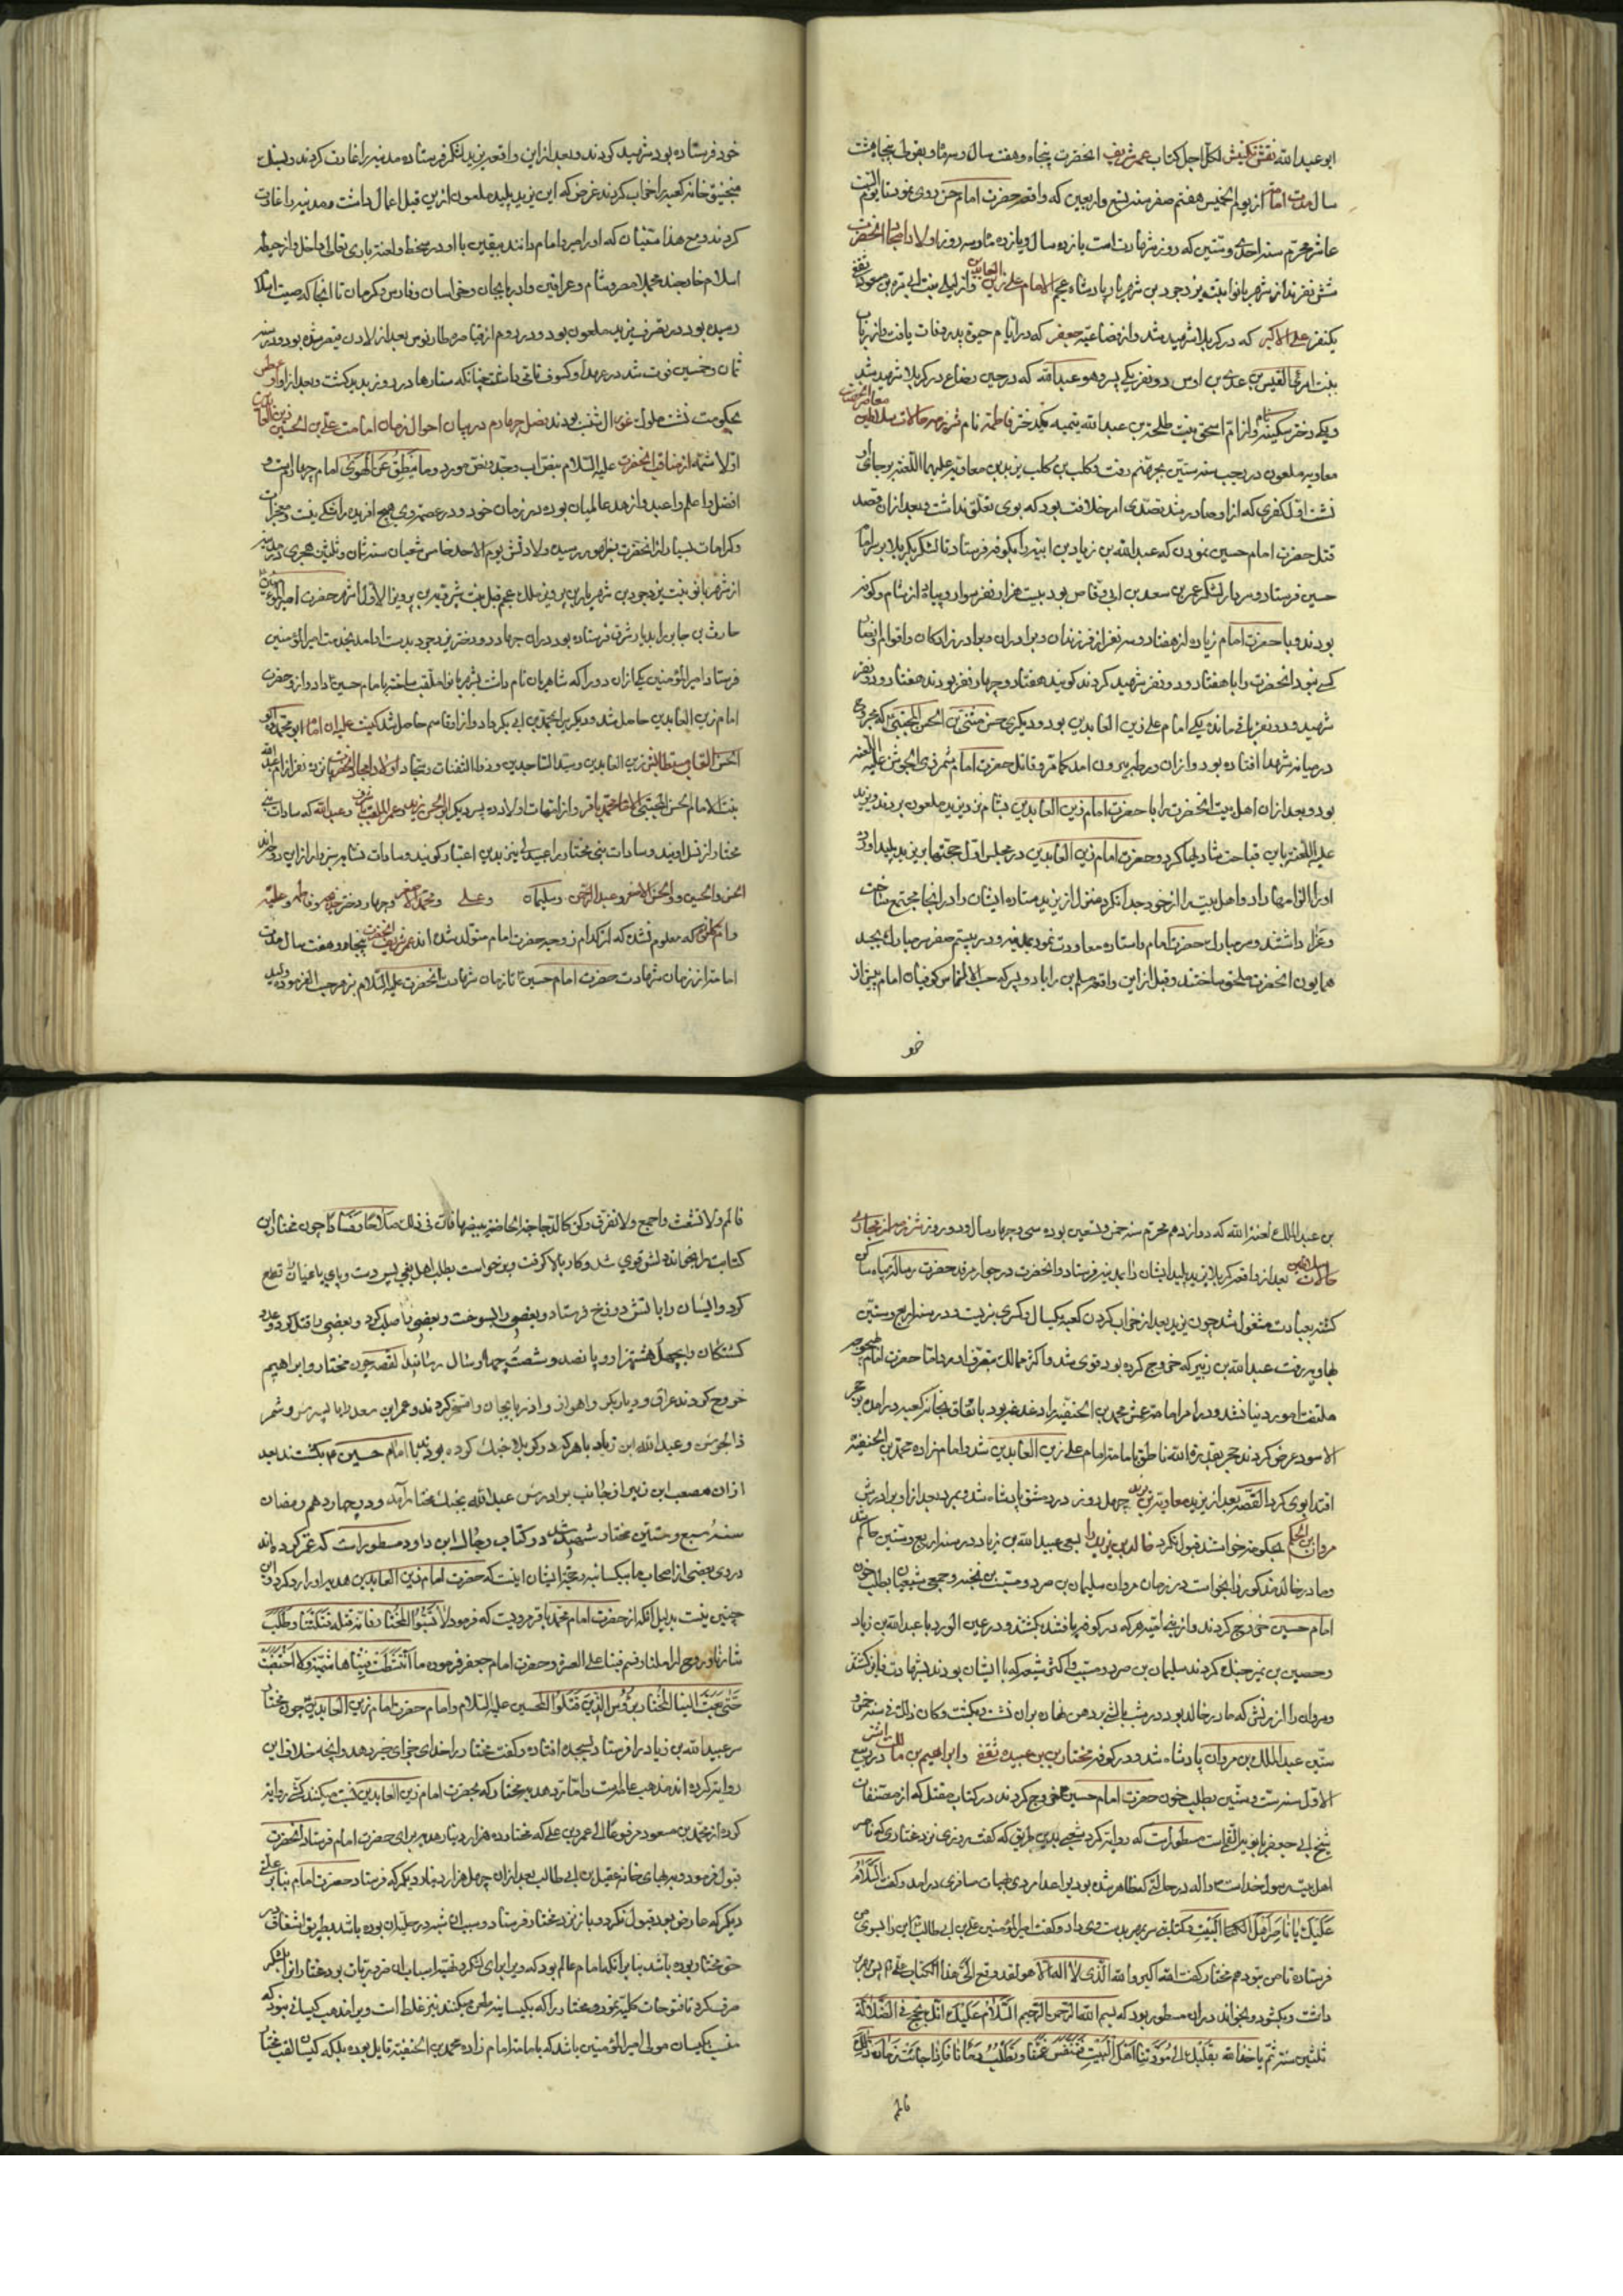 ابو عبدالله نقش نگینش لکل اجل کتاب عمر شریف انحضرت پنجاه و هفت سال و
سال مدت امامت از یوم الخمیس هفتم صفر سنه تسع و اربعین که واقعه حضرت امام حسن روی نمود تا یوم السبت
عاشر محرم سنه احدی و ستین که روز شهادت است یازده سال و یازده ماه و سه روز اولاد امجاد انحضرت
شش نفرند از شهربانو بنت یزدجرد بن شهریار پادشاه عجم الامام علی زین العابدین و از لیلی بنت ابی مره بن مسعود ثقفی
یکنفر علی الاکبر که در کربلا شهید شد و از قضاعیه جعفر که در ایام حیوة پدر وفات یافت و از رباب
بنت امرئ القیس بن عدی بن اوس دو نفر یکی پسر و هو عبدالله که در حین رضاع در کربلا شهید شد
و یکی دختر سکینه نام و از ام اسحق بنت طلحة بن عبدالله یتمیه یکدختر فاطمه نام حالات سلاطین معاصر انحضرت
معاویه ملعون در رجب سنه ستین بجهنم رفت و کلب بن کلب یزید بن معاویه علیهما اللعنه بر جای او
نشست اول کفری که از او صادر شد تصدی امر خلافت بود که بوی تعلق نداشت و بعد از ان قصد
قتل حضرت امام حسین نمودن که عبدالله بن زیاد بن ابیه را بکوفه فرستاد تا لشکر بکربلا بر سر امام
حسین فرستاد و سردار لشکر عمر بن سعد بن ابی وقاص بود بیست هزار نفر سوار و پیاده از شام و کوفه
بودند و با حضرت امام زیاده از هفتاد و سه نفر از فرزندان و برادران و برادرزادکان و اقوام و انصار
کسی نبود انحضرت را با هفتاد و دو نفر شهید کردند کویند هفتاد و چهار نفر بودند هفتاد و دو نفر
شهید و دو نفر باقی ماند یکی امام علی زین العابدین بود و دیکری حسن مثنی بن الحسن المجتبی که مجروح
در میانه شهدا افتاده بود و از ان ورطه بیرون امد کما مر و قاتل حضرت امام شمر ذی الجوشن علیه اللعنه
بود و بعد از ان اهل بیت انحضرت را با حضرت امام زین العابدین بشام نزد یزید ملعون بردند و یزید
علیه اللعنه باین قباحت شادیها کرد و حضرت امام زین العابدین در مجلس اول حجتها بر یزید پلید اورد
او را الزامها داد و اهل بیت را از خود جدا نکرد منزل از یزید ستاده ایشان را در انجا مجتمع ساخت
و عزا داشتند و سر مبارک حضرت امام را ستاده معاودت نمود بمدینه و در بیستم صفر سر مبارک بجسد
همایون انحضرت ملحق ساختند و قبل از این واقعه مسلم بن را با دو پسر که حسب الالتماس کوفیان امام پیش از
خو
خود فرستاده بود شهید کردند و بعد از این واقعه یزید لشکر فرستاده مدینه را غارت کردند و بسنک
منجنیق خانه کعبه را خراب کردند غرض که این یزید پلید ملعون از این قبیل اعمال داشت و مدینه را غارت
کردند و مع هذا سنیان که او را امیر و امام دانند بیقین با او در سخط و لعنت باری تعالی داخل و از حیطه
اسلام خارجند مجملا مصر و شام و عراقین و اذربایجان و خراسان و فارس و کرمان تا انجا که صیت اسلام
رسیده بود در تصرف یزید ملعون بود و در روم از قیاصره طارنوس بعد از لاون قیصر شده بود و در سنه
ثمان و خمسین فوت شد در عهد او کسوف تامی داشت چنانکه ستارها در روز پدید کشت و بعد از او
بحکومت نشست فصل چهارم در بیان احوال زمان امامت علی بن الحسین زین العابدین
اولا شمه از مناقب انحضرت علیه السلام بنص اب و جد و نص مورد وما ینطق عن الهوی امام چهارم است و
افضل و اعلم و اعبد و ازهد عالمیان بوده در زمان خود و در عصمت وی هیچ افریده را شکی نیست و معجزات
و کرامات بسیار از انحضرت بظهور رسیده ولادتش یوم الاحد خامس شعبان سنه ثمان و ثلثین هجری در مدینه
از شهربانو بنت یزدجرد بن شهریار بن پرویز ملک عجم قیل بنت شیرویه بن پرویز الاول اشهر حضرت امیر المومنین
حارث بن جابر را بدیار شرق فرستاده بود در ان جهاد دو دختر یزدجرد بدست او امد بخدمت امیر المؤمنین
فرستاد امیر المؤمنین یکی از ان دو را که شاه جهان نام داشت بشهربانو ملقب ساخته بامام حسین داد و از و حضرت
امام زین العابدین حاصل شد و دیکر را بمحمد بن ابی بکر داد و از او قاسم حاصل شد کنیت علیه ابو محمد و ابو
الحسن القاب مستطابش زین العابدین و سید الساجدین و ذو الثفنات و سجاد اولاد امجاد انحضرت پانزده نفر از ام عبدالله
بنت الامام الحسن المجتبی الامام محمد باقر و از امهات اولاد ده پسر دیکر ابو الحسن زید و عمر الملقب باشرف و عبدالله که سادات بنی
مختار از نسل اویند و سادات بنی مختار را عبیدلی نیز بدین اعتبار کویند و سادات و سبزوار از این دودمانند
الحسن والحسین و الحسین الاصغر و عبدالرحمن و سلیمان و علی و محمد الاصغر و چهار دختر خدیجه و فاطمه و علیه
و ام کلثوم که معلوم نشده که از کدام زوجه حضرت امام متولد شده اند عمر شریف انحضرت پنجاه و هفت سال مدت
امامت از زمان شهادت حضرت امام حسین تا زمان شهادت انحضرت علیه السلام بزهر حسب الفرموده ولید
بن عبدالملک لعنه الله که دوازدهم محرم سنه خمس و تسعین بوده سی و چهار سال و دو روز
حالات سلاطین بعد از واقعه کربلا یزید پلید ایشان را بمدینه فرستاد و انحضرت در جوار مرقد حضرت رسالت پناه ساکن
کشته بعبادت مشغول شد چون یزید بعد از خراب کردن کعبه یکسال و کسری بزیست و در سنه اربع و ستین
بهاویه رفت عبدالله بن زبیر که خروج کرده بود قوی شد و اکثر ممالک متصرف امد و اما حضرت امام
ملتفت امور دنیا نشد و در امر امامت عمش محمد بن الحنفیه را دغدغه بود باتفاق بخانه کعبه درامده بحجر
الاسود عرض کردند حجر بقدرة الله ناطق بامامت امام علی زین العابدین شد و امام زاده محمد بن الحنفیه
اقتدا بوی کرد القصه بعد از یزید معاویة بن یزید چهل روز در دمشق پادشاه شد و بمرد بعد از او برادرش
خالد بن یزید را بحکومت خواستند قبول نکرد مروان بن الحکم بسعی عبیدالله بن زیاد در سنه اربع و ستین حاکم شد
و مادر خالد مذکور را بخواست در زمان مروان سلیمان بن صرد و مسیب بن نجبه و جمعی شیعیان بطلب خون
امام حسین خروج کردند و از بنی امیه هر که در کوفه یافتند بکشتند و در عین الورد با عبدالله بن زیاد
و حصین بن نمیر جنک کردند سلیمان بن صرد و مسیب و اکثر شیعه که با ایشان بودند بشهادت فایز کشتند
و مروان را زنش که مادر خالد بود در شب بالش بر دهن نهاد بر ان نشست و بکشت و کان ذلک فی سنه خمس و
ستین عبدالملک بن مروان پادشاه شد و در کوفه مختار بن بن عبیده ثقفی و ابراهیم بن مالک اشتر در ربیع
الاول سنه ست و ستین بطلب خون حضرت امام حسین خروج کردند در کتاب مقتل که از مصنفات
شیخ ابی جعفر بابویه القمی است مسطور است که روایت کرد شعبی بدین طریق که کفت روزی نزد مختار که ناصر
اهل بیت رسول خداست و اله در حالتی که ظاهر شده بود بر اعدا مردی بهیات مسافری درامد و کفت السلام
علیک یا ناصر اهل البیت و کتابتی سر بمهر بدست وی داد و کفت امیر المؤمنین علی بن ابی طالب این را بسوی من
فرستاده تا من بتو دهم مختار کفت الله اکبر والله الذی لا اله الا هو لقد وقع الی هذا الکتاب
داشت و بکشود و بخواند در ان مسطور بود که بسم الله الرحمن الرحیم السلام علیک انک تخرج فی الضلالة
ثلثین سنه ثم یاخذ الله بقلبک الی مودتنا اهل البیت و تطلب بدمائنا فاذا جائت
فالم
فالم ولا تشتت واجمع ولا تفرق وکن کالدجاجة الحاضنة بیضها فان فی ذلک صلاحا چون مختار این
کتابت را بخواند دلش قوی شد و کار بالا کرفت و برخواست بطلب اهل بغی پس دست و پای یاغیان قطع
کرد و ایشان را باتش دوزخ فرستاد و بعضی را بسوخت و بعضی را صلب کرد و بعضی را قتل کرد و عدد
کشتکان را بچهل هشتهزار و پانصد و شصت چهار رسانید القصه چون مختار و ابراهیم
خروج کردند عراق و دیاربکر و اهواز و اذربایجان را مسخر کردند و عمر ابن سعد را با پسرش و شمر
ذالجوشن و عبدالله ابن زیاد با هر که در کربلا جنک کرده بودند با امام حسین بکشتند بعد
از ان مصعب ابن زبیر از جانب برادرش عبدالله بجنک مختار آمد و در چهاردهم رمضان
سنهٔ سبع و ستین مختار شهید شد در کتاب رجال ابن داود مسطور است که غمز کرده اند
در وی بعضی از اصحاب ما بکیسانیه و حجت ایشان اینست که حضرت امام زین العابدین هدیه او را رد کرد و این
چنین نیست بدلیل انکه از حضرت امام محمد باقر مرویست که فرمود لا تسبوا المختار فانه قتل قتلتنا وطلب
ثارنا وزوج اراملنا وقسم فینا علی العسرة و حضرت امام جعفر فرموده ما امتشطت فینا هاشمیة ولا اختضبت
حتی بعث الینا المختار برؤس الذین قتلوا الحسین علیه السلام و امام حضرت امام زین العابدین چون مختار
سر عبیدالله بن زیاد را فرستاد بسجده افتاده و کفت مختار را خدای جزای خیر دهد و انچه خلاف این
روایت کرده اند مذهب عامه است و اما رد هدیه مختار که بحضرت امام زین العابدین نسبت میکنند کشی روایت
کرده از محمد بن مسعود مرفوعا الی عمر بن علی که مختار ده هزار دینار هدیه برای حضرت امام فرستاد انحضرت
قبول فرمود و بدان بنای خانه عقیل بن ابی طالب بعد از ان چهل هزار دینار دیکر که فرستاد حضرت امام بنا بر علتی
دیکر که عارض بود قبول نکرد و باز نزد مختار فرستاد و سبب ان شبهه در حلیت ان بوده باشد بطریق اشفاق در
حق مختار بوده باشد بنا بر انکه امام عالم بود که ویرا برای لشکر و تهیه اسباب ان ضروریات بود مختار انرا بلشکر
صرف کرد تا فتوحات کلیه نمود و مختار را که بکیسانیه طعن میکنند نیز غلط است و ویرا مذهب کیسانی نبود که
منسوب بکیسان مولی امیر المؤمنین باشد که بامامت امام زاده محمد بن الحنفیه قایل بوده بلکه کیسان لقب مختار